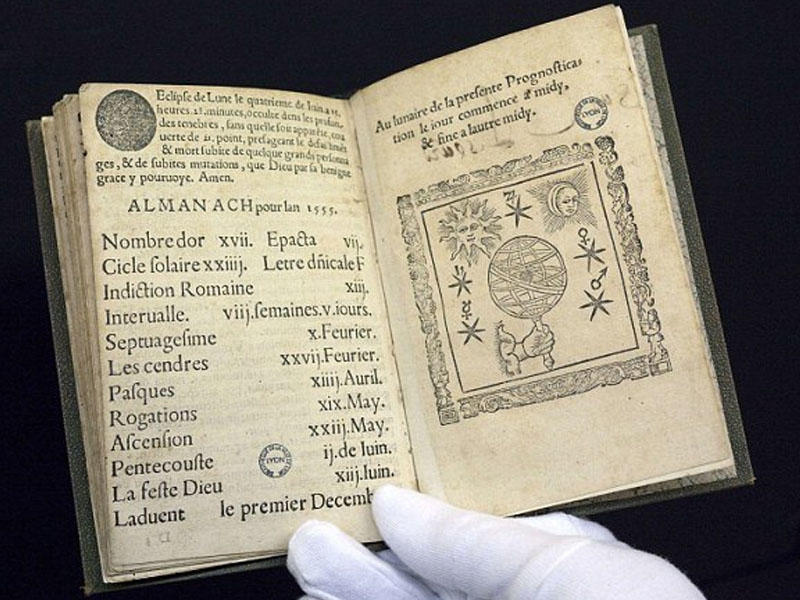 Eclipse de Lune le quatrieme de Iuin a
heures. minutes, occulte dens les
des tenebres, sans quelle soit
uerte de point, presageant le
& mort subite de quelque grands
ges, & de subites mutations, que Dieu par sa benigne
grace y pouruoye. Amen.
ALMANACH pour lan 1555.
Nombre dor xvii. Epacta vij.
Cicle solaire xxiij. Letre dñicale F
Indiction Romaine xiij.
Interualle. viij. semaines. v. iours.
Septuagesime x. Feurier.
Les cendres xxvij. Feurier.
Pasques xiiij. Auril.
Rogations xix. May.
Ascension xxiij. May.
Pentecouste ij. de Iuin.
La feste Dieu xiij. Iuin.
Laduent le premier Decemb
LYON
Au lunaire de la presente Prognostica-
tion le iour commence a midy,
& fine a lautre midy.
LYON